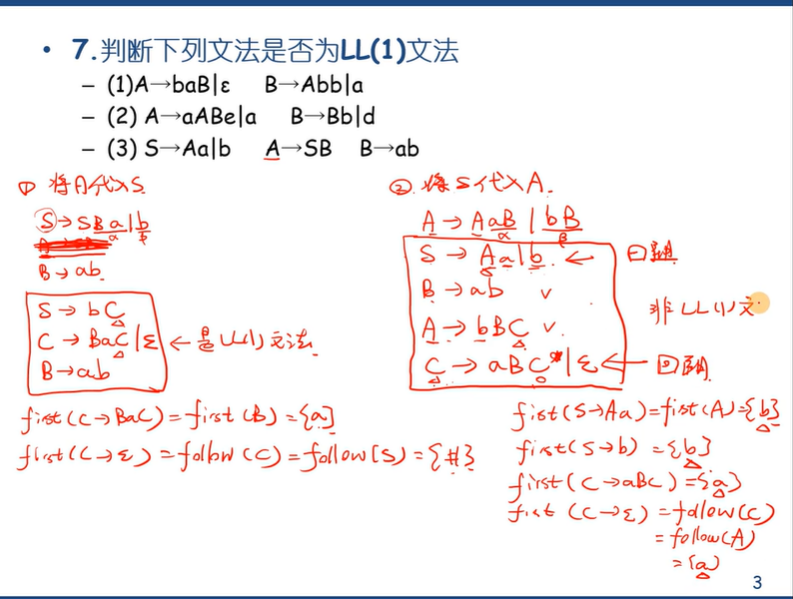 • 7.判断下列文法是否为LL(1)文法
– (1)A→baB|ε B→Abb|a
– (2) A→aABe|a B→Bb|d
– (3) S→Aa|b A→SB B→ab
① 将A代入S.
S→SBa|b
α β
B→ab.
S→bC
C→BaC|ε ← 是LL(1)文法.
B→ab
first(C→BaC)=first(B)={a}
first(C→ε)=follow(C)=follow(S)={#}
② 将S代入A.
A→AaB|bB
α β
S→Aa|b. ← 回溯
B→ab ∨
A→bBC ∨.
C→aBC|ε ← 回溯
非LL(1)文
first(S→Aa)=first(A)={b}
first(S→b)={b}
first(C→aBC)={a}
first(C→ε)=follow(C)
=follow(A)
={a}
3